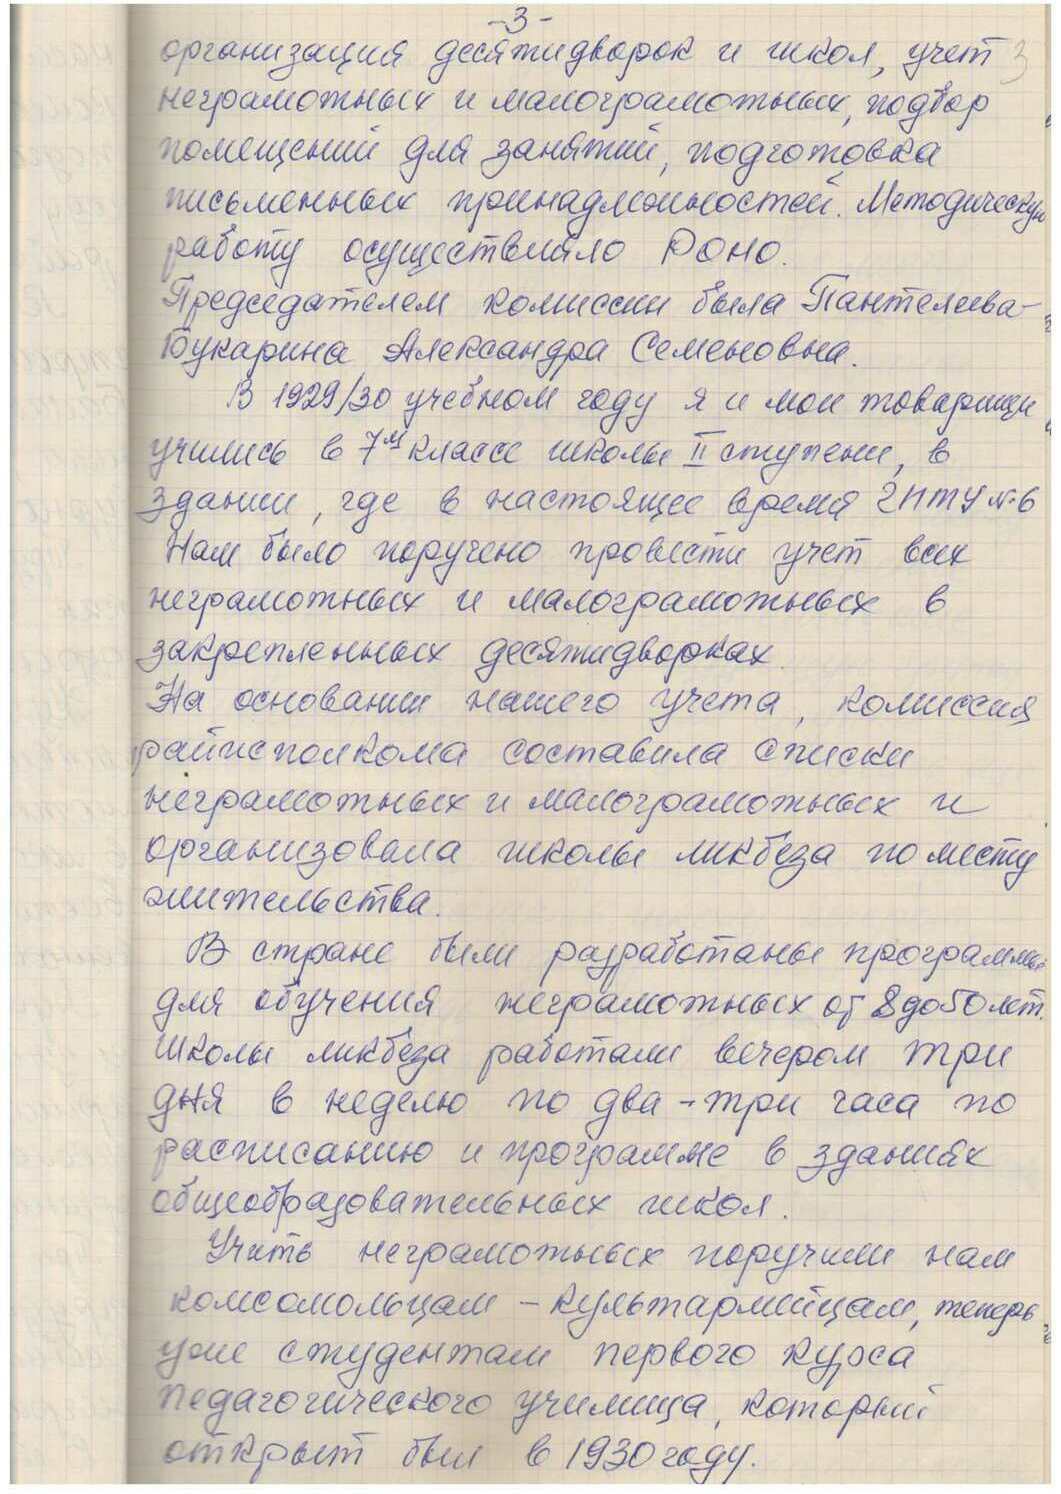 -3-
3
организация десятидворок и школ, учет
неграмотных и малограмотных, подбор
помещений для занятий, подготовка
письменных принадлежностей. Методическую
работу осуществляло РОНО.
Председателем комиссии была Пантелеева-
Букарина Александра Семеновна.
В 1929/30 учебном году я и мои товарищи
учились в 7м классе школы II ступени, в
здании, где в настоящее время ГПТУ №6
Нам было поручено провести учет всех
неграмотных и малограмотных в
закрепленных десятидворках.
На основании нашего учета, комиссия
райисполкома составила списки
неграмотных и малограмотных и
организовала школы ликбеза по месту
жительства.
В стране были разработаны программы
для обучения неграмотных от 8 до 50 лет.
Школы ликбеза работали вечером три
дня в неделю по два-три часа по
расписанию и программе в зданиях
общеобразовательных школ.
Учить неграмотных поручили нам
комсомольцам - культармейцам, теперь
уже студентам первого курса
педагогического училища, который
открыт был в 1930 году.